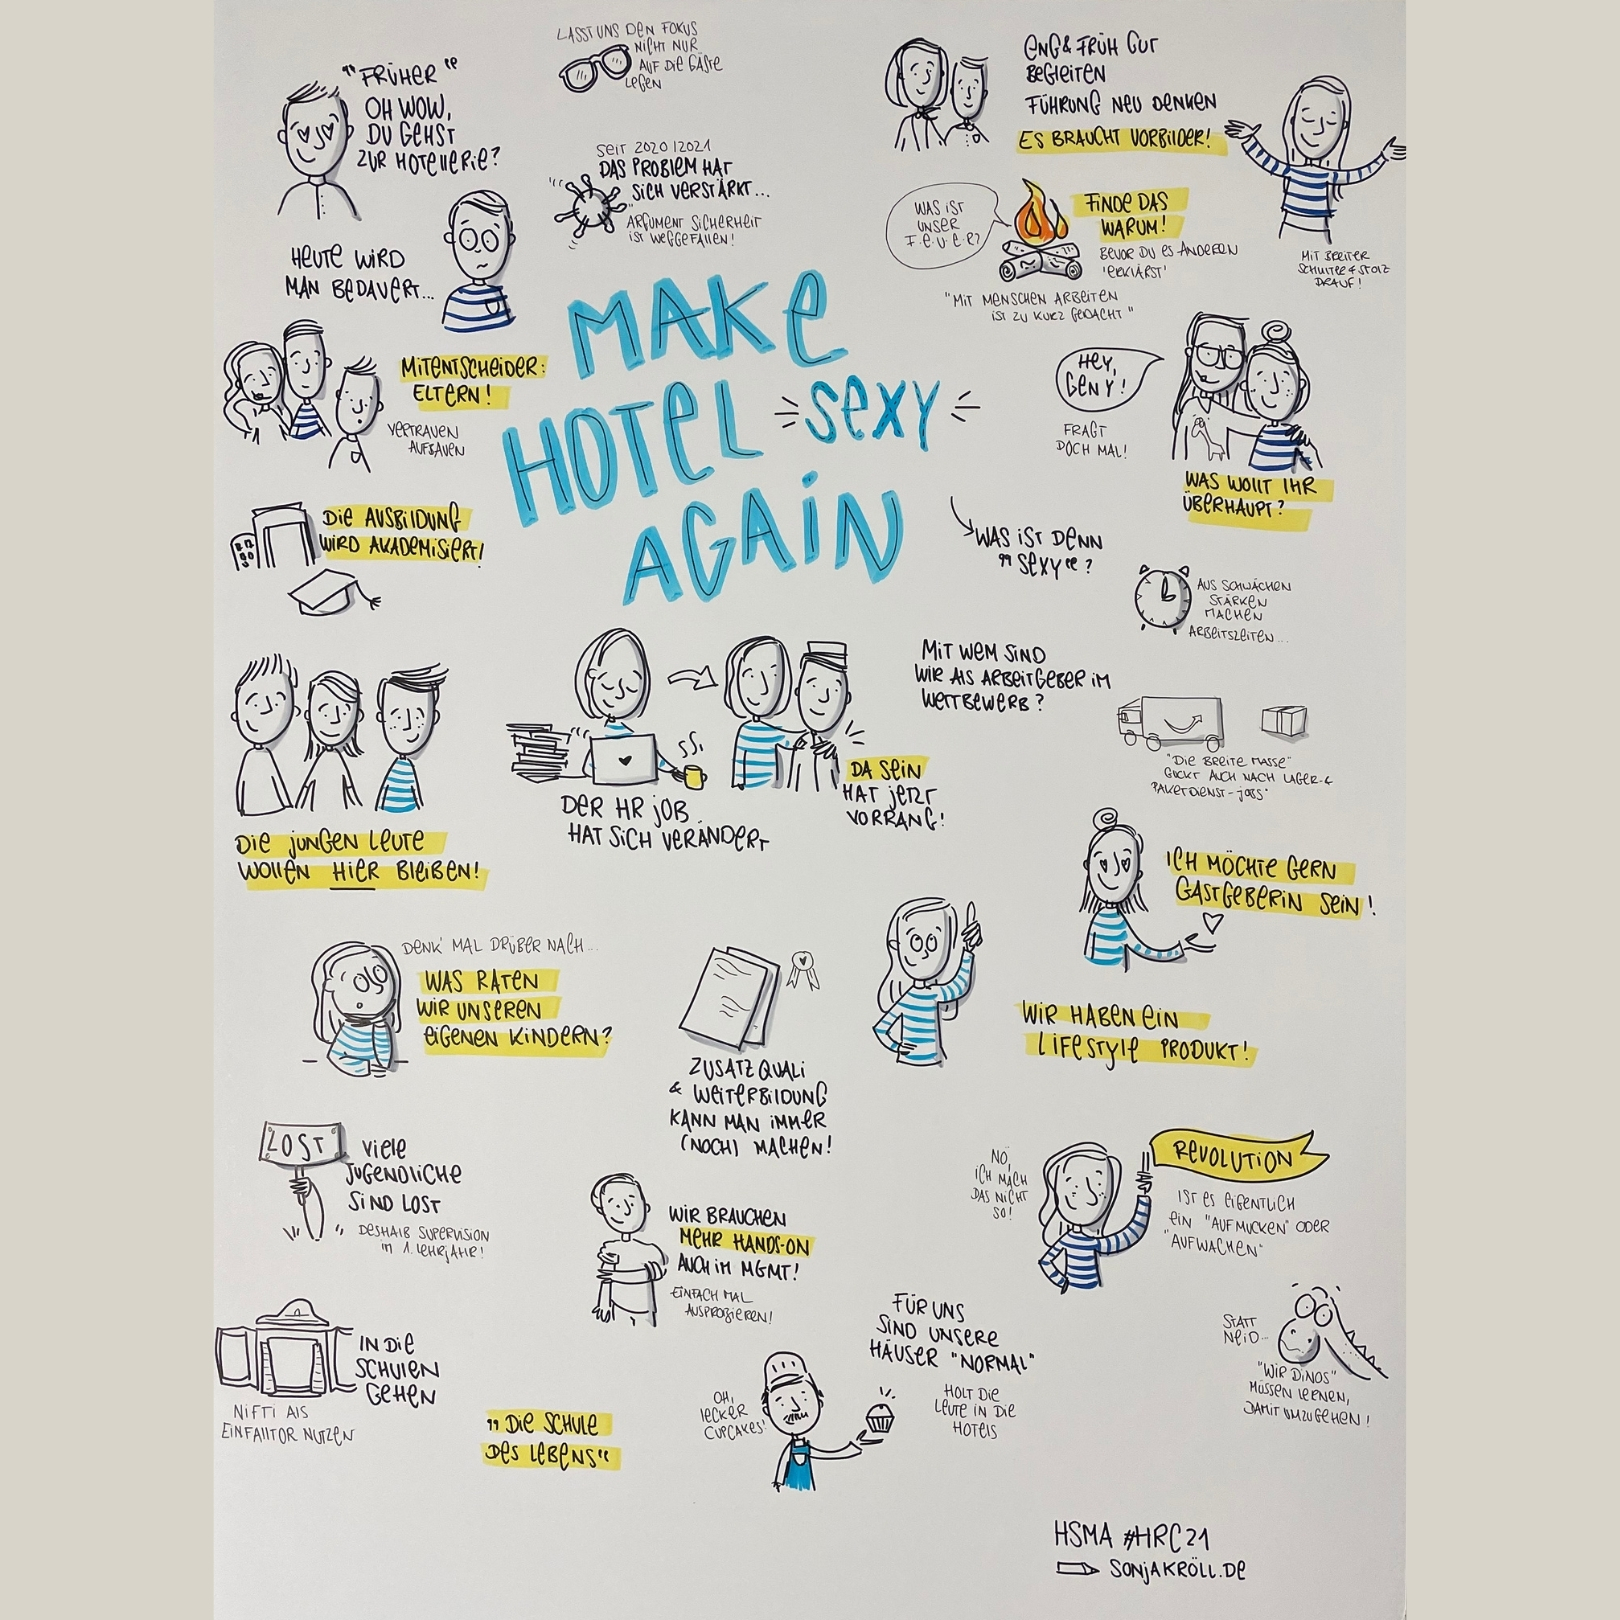 "FRÜHER"
OH WOW,
DU GEHST
ZUR HOTELLERIE?
HEUTE WIRD
MAN BEDAUERT...
LASST UNS DEN FOKUS
NICHT NUR
AUF DIE GÄSTE
LEGEN
SEIT 2020/2021
DAS PROBLEM HAT
SICH VERSTÄRKT...
ARGUMENT SICHERHEIT
IST WEGGEFALLEN!
ENG & FRÜH GUT
BEGLEITEN
FÜHRUNG NEU DENKEN
ES BRAUCHT VORBILDER!
MIT BREITER
SCHULTER & STOLZ
DRAUF!
WAS IST
UNSER
F.E.U.E.R?
FINDE DAS
WARUM!
BEVOR DU ES ANDEREN
'ERKLÄRST'
"MIT MENSCHEN ARBEITEN
IST ZU KURZ GEDACHT"
MITENTSCHEIDER:
ELTERN!
VERTRAUEN
AUFBAUEN
MAKE
HOTEL SEXY
AGAIN
HEY,
GEN Y!
FRAGT
DOCH MAL!
WAS WOLLT IHR
ÜBERHAUPT?
WAS IST DENN
"SEXY"?
DIE AUSBILDUNG
WIRD AKADEMISIERT!
AUS SCHWÄCHEN
STÄRKEN
MACHEN
ARBEITSZEITEN...
DIE JUNGEN LEUTE
WOLLEN HIER BLEIBEN!
DER HR JOB
HAT SICH VERÄNDERT
DA SEIN
HAT JETZT
VORRANG!
MIT WEM SIND
WIR ALS ARBEITGEBER IM
WETTBEWERB?
"DIE BREITE MASSE"
GUCKT AUCH NACH LAGER- &
PAKETDIENST-JOBS"
ICH MÖCHTE GERN
GASTGEBERIN SEIN!
DENK' MAL DRÜBER NACH...
WAS RATEN
WIR UNSEREN
EIGENEN KINDERN?
ZUSATZQUALI
& WEITERBILDUNG
KANN MAN IMMER
(NOCH) MACHEN!
WIR HABEN EIN
LIFESTYLE PRODUKT!
LOST
VIELE
JUGENDLICHE
SIND LOST
DESHALB SUPERVISION
IM 1. LEHRJAHR!
WIR BRAUCHEN
MEHR HANDS-ON
AUCH IM MGMT!
EINFACH MAL
AUSPROBIEREN!
NÖ,
ICH MACH
DAS NICHT
SO!
REVOLUTION
IST ES EIGENTLICH
EIN "AUFMUCKEN" ODER
"AUFWACHEN"
IN DIE
SCHULEN
GEHEN
NIFTI ALS
EINFALLTOR NUTZEN
"DIE SCHULE
DES LEBENS"
OH,
LECKER
CUPCAKES!
FÜR UNS
SIND UNSERE
HÄUSER "NORMAL"
HOLT DIE
LEUTE IN DIE
HOTELS
STATT
NEID...
"WIR DINOS"
MÜSSEN LERNEN,
DAMIT UMZUGEHEN!
HSMA #HRC21
SONJAKRÖLL.DE